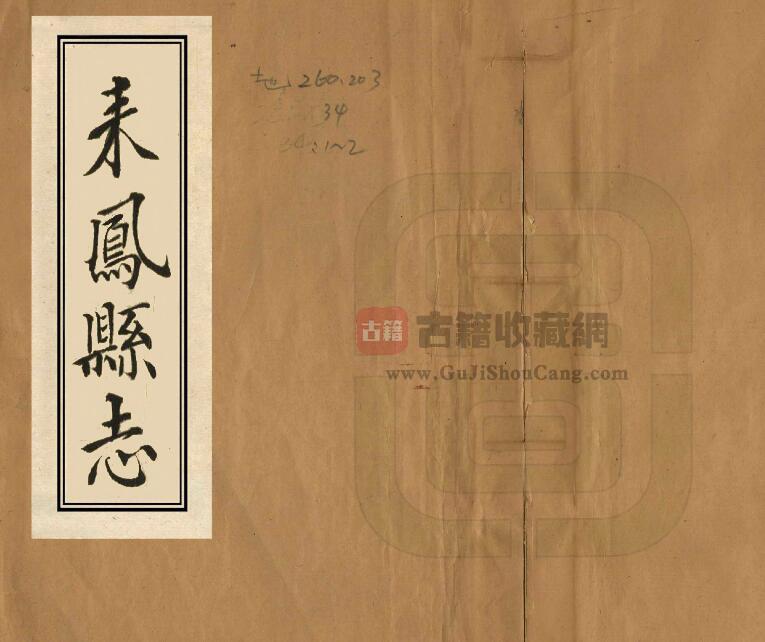 来鳳縣志
地 260.203
34
1~2
古籍
古籍收藏網
www.GuJiShouCang.com